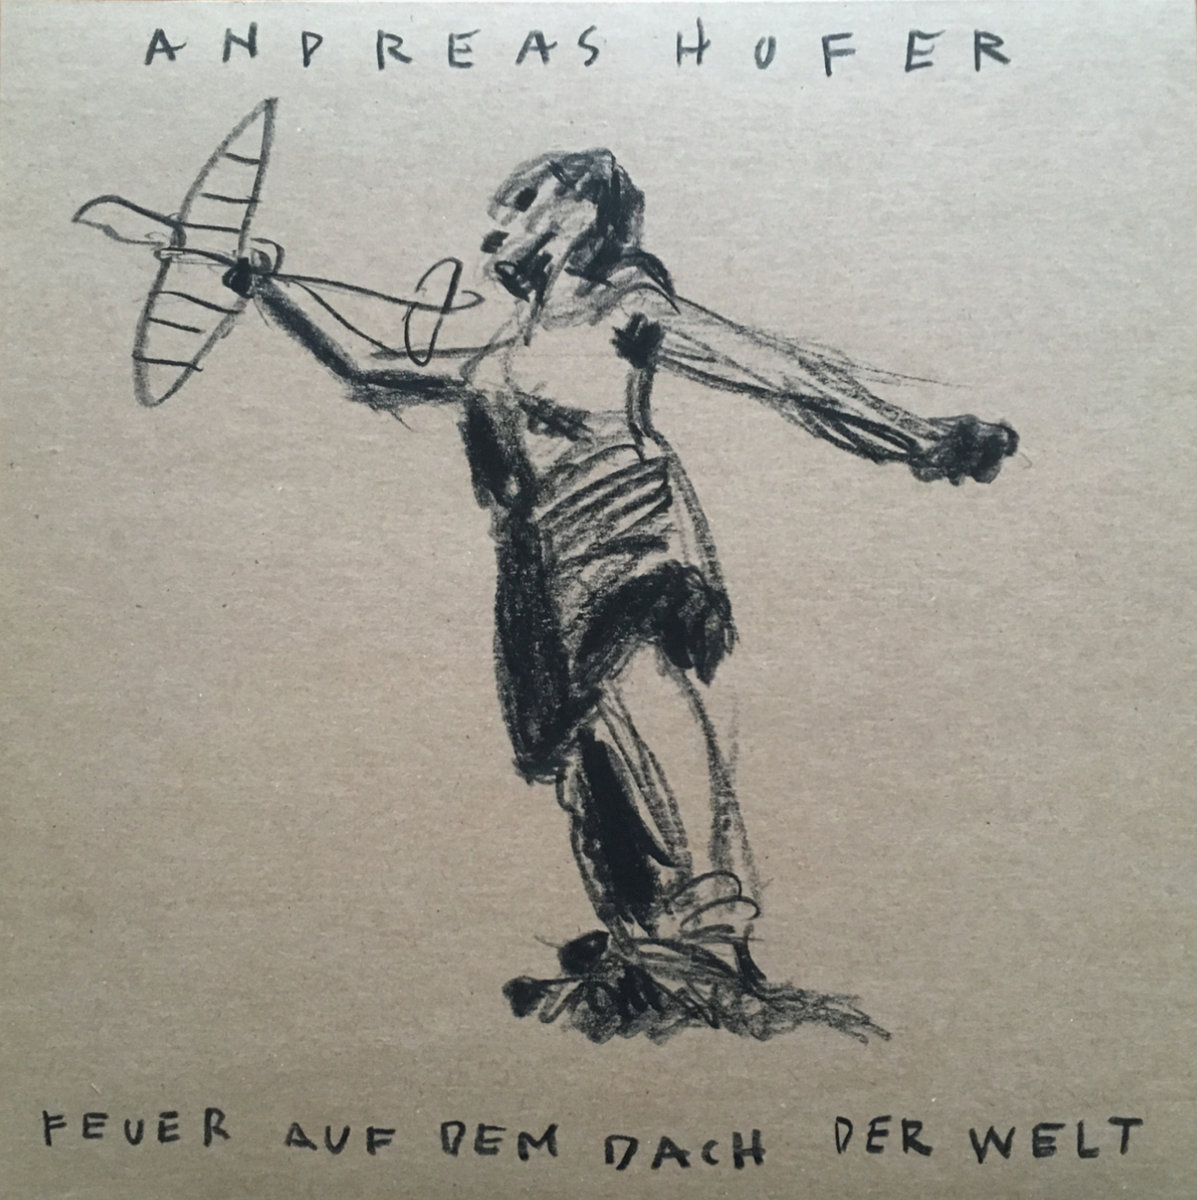 ANDREAS HOFER
FEUER AUF DEM DACH DER WELT